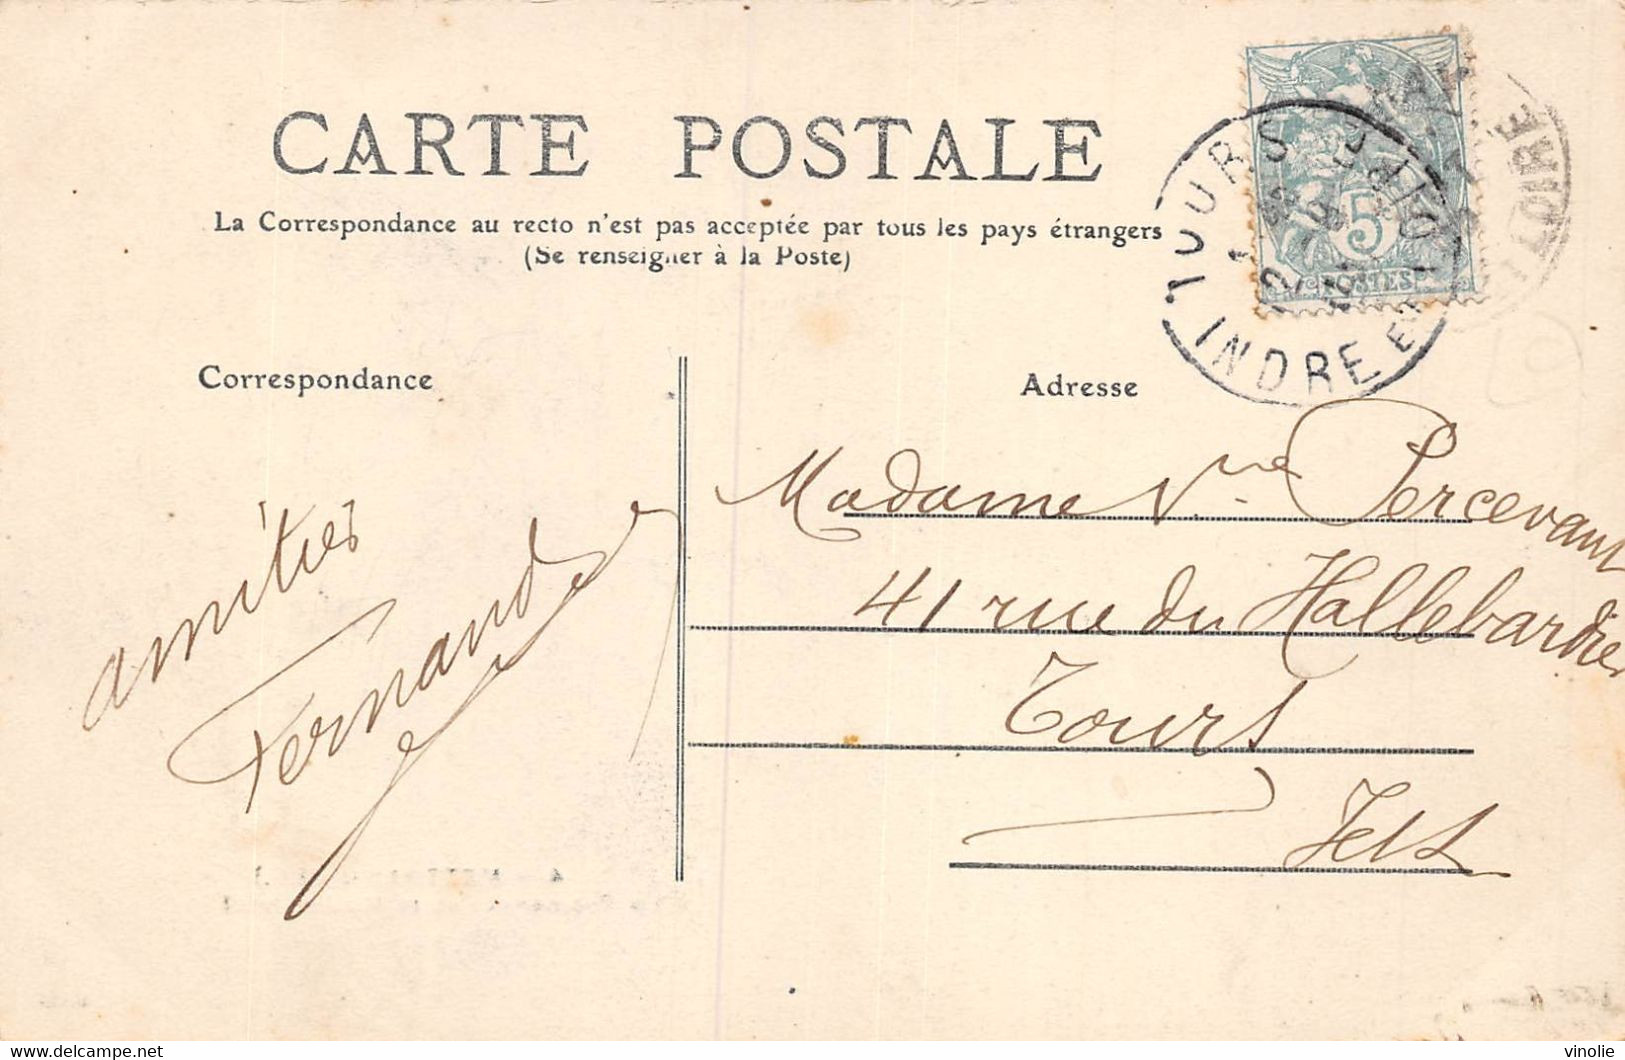 CARTE POSTALE
La Correspondance au recto n'est pas acceptée par tous les pays étrangers
(Se renseigner à la Poste)
5
POSTES
TOURS
INDRE ET LOIRE
Correspondance
Adresse
amitiés
Fernande
Madame Vve Percevant
41 rue du Hallebardier
Tours
delcampe.net
vinolie